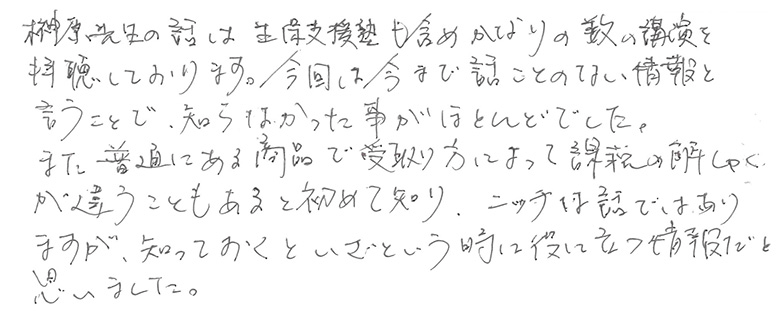 榊原先生の話は生保支援塾も含めかなりの数の講演を
拝聴しております。今回は今まで話ことのない情報と
言うことで、知らなかった事がほとんどでした。
また普通にある商品で受取り方によって課税の解しゃく
が違うこともあると初めて知り、ニッチな話ではあり
ますが、知っておくといざという時に役に立つ情報だと
思いました。